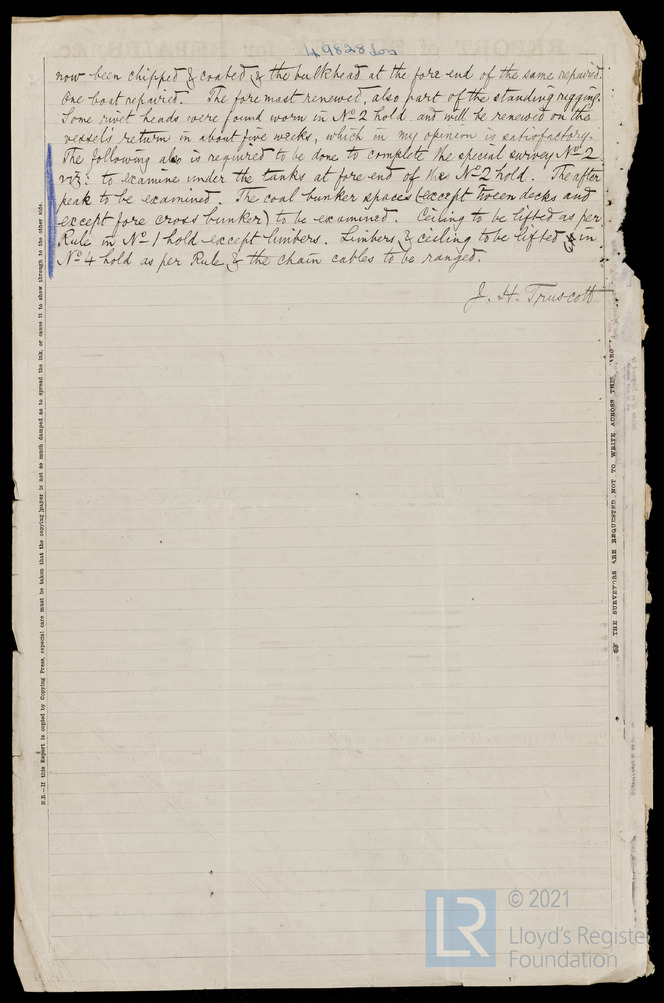 49828 Lon
now been chipped & coated, & the bulkhead at the fore end of the same repaired.
One boat repaired. The foremast renewed, also part of the standing rigging.
Some rivet heads were found worn in No 2 hold and will be renewed on the
vessel's return in about five weeks, which in my opinion is satisfactory.
The following also is required to be done to complete the special survey No 2
viz: to examine under the tanks at fore end of the No 2 hold. The after
peak to be examined. The coal bunker spaces (except Tween decks and
except fore cross bunker) to be examined. Ceiling to be lifted as per
Rule in No 1 hold except limbers. Limbers & ceiling to be lifted in
No 4 hold as per Rule, & the chain cables to be ranged.
J. H. Truscott
N.B.—If this Report is copied by Copying Press, especial care must be taken that the copying paper is not so much damped as to spread the ink, or cause it to show through to the other side.
THE SURVEYORS ARE REQUESTED NOT TO WRITE ACROSS THIS
LR
© 2021
Lloyd's Register
Foundation